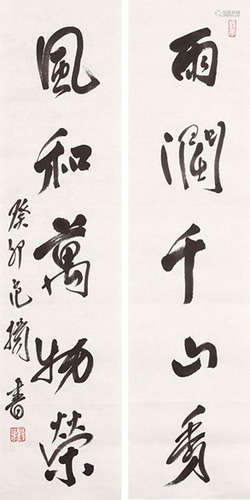 雨润千山秀
風和萬物榮
癸卯范揚書